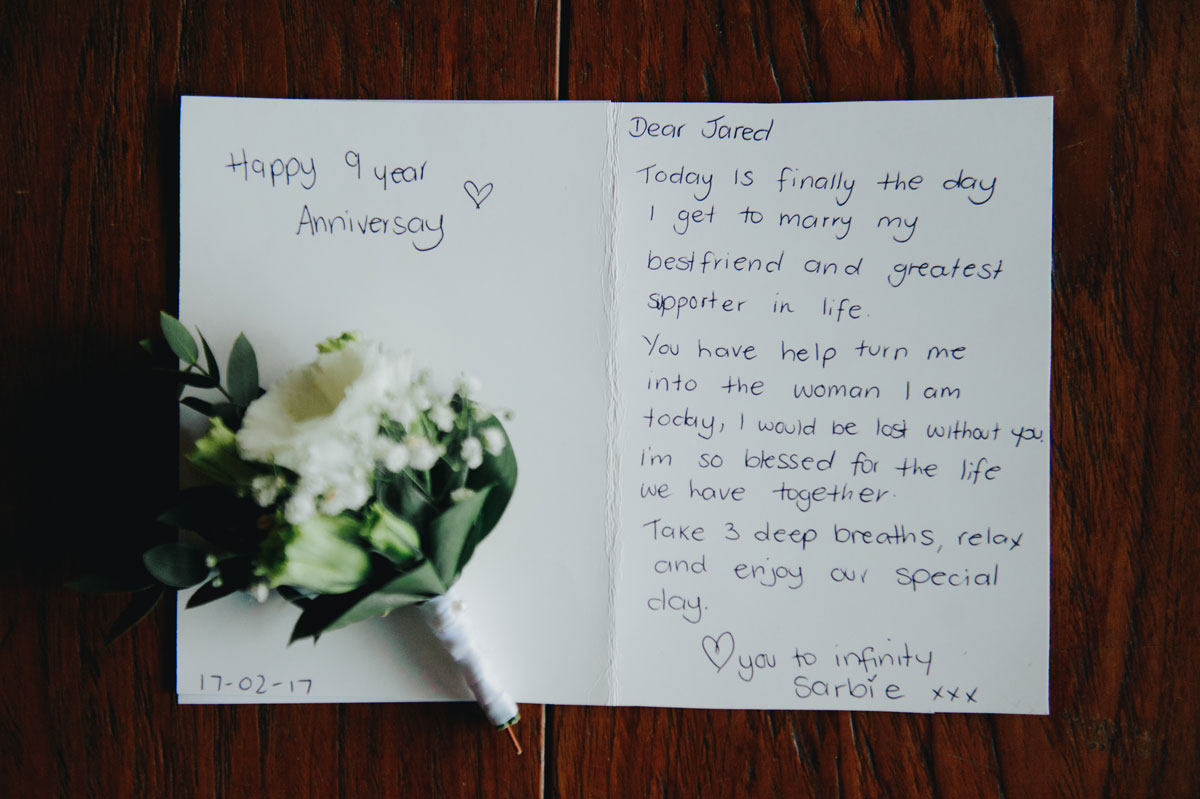 Happy 9 year
Anniversay ♡
17-02-17
Dear Jared
Today is finally the day
I get to marry my
bestfriend and greatest
supporter in life.
You have help turn me
into the woman I am
today, I would be lost without you.
i'm so blessed for the life
we have together.
Take 3 deep breaths, relax
and enjoy our special
day.
♡ you to infinity
Sarbie xxx